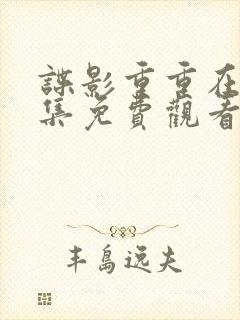 諜影重重在
集免費觀看
丰島远夫